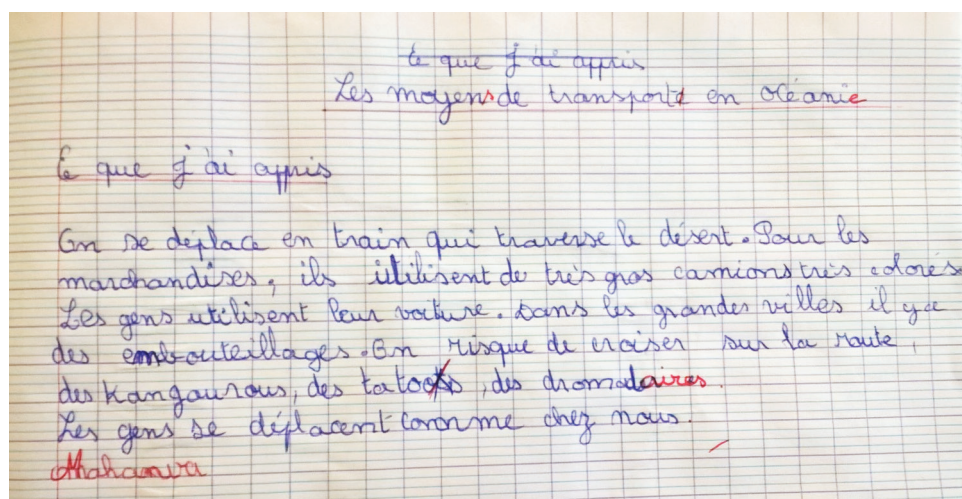 Ce que j'ai appris
Les moyens de transport en océanie
Ce que j'ai appris
On se déplace en train qui traverse le désert. Pour les
marchandises, ils utilisent de très gros camions très colorés
Les gens utilisent leur voiture. Dans les grandes villes il y a
des embouteillages. On risque de croiser sur la route,
des Kangourous, des tatous, des dromadaires.
Les gens se déplacent comme chez nous.